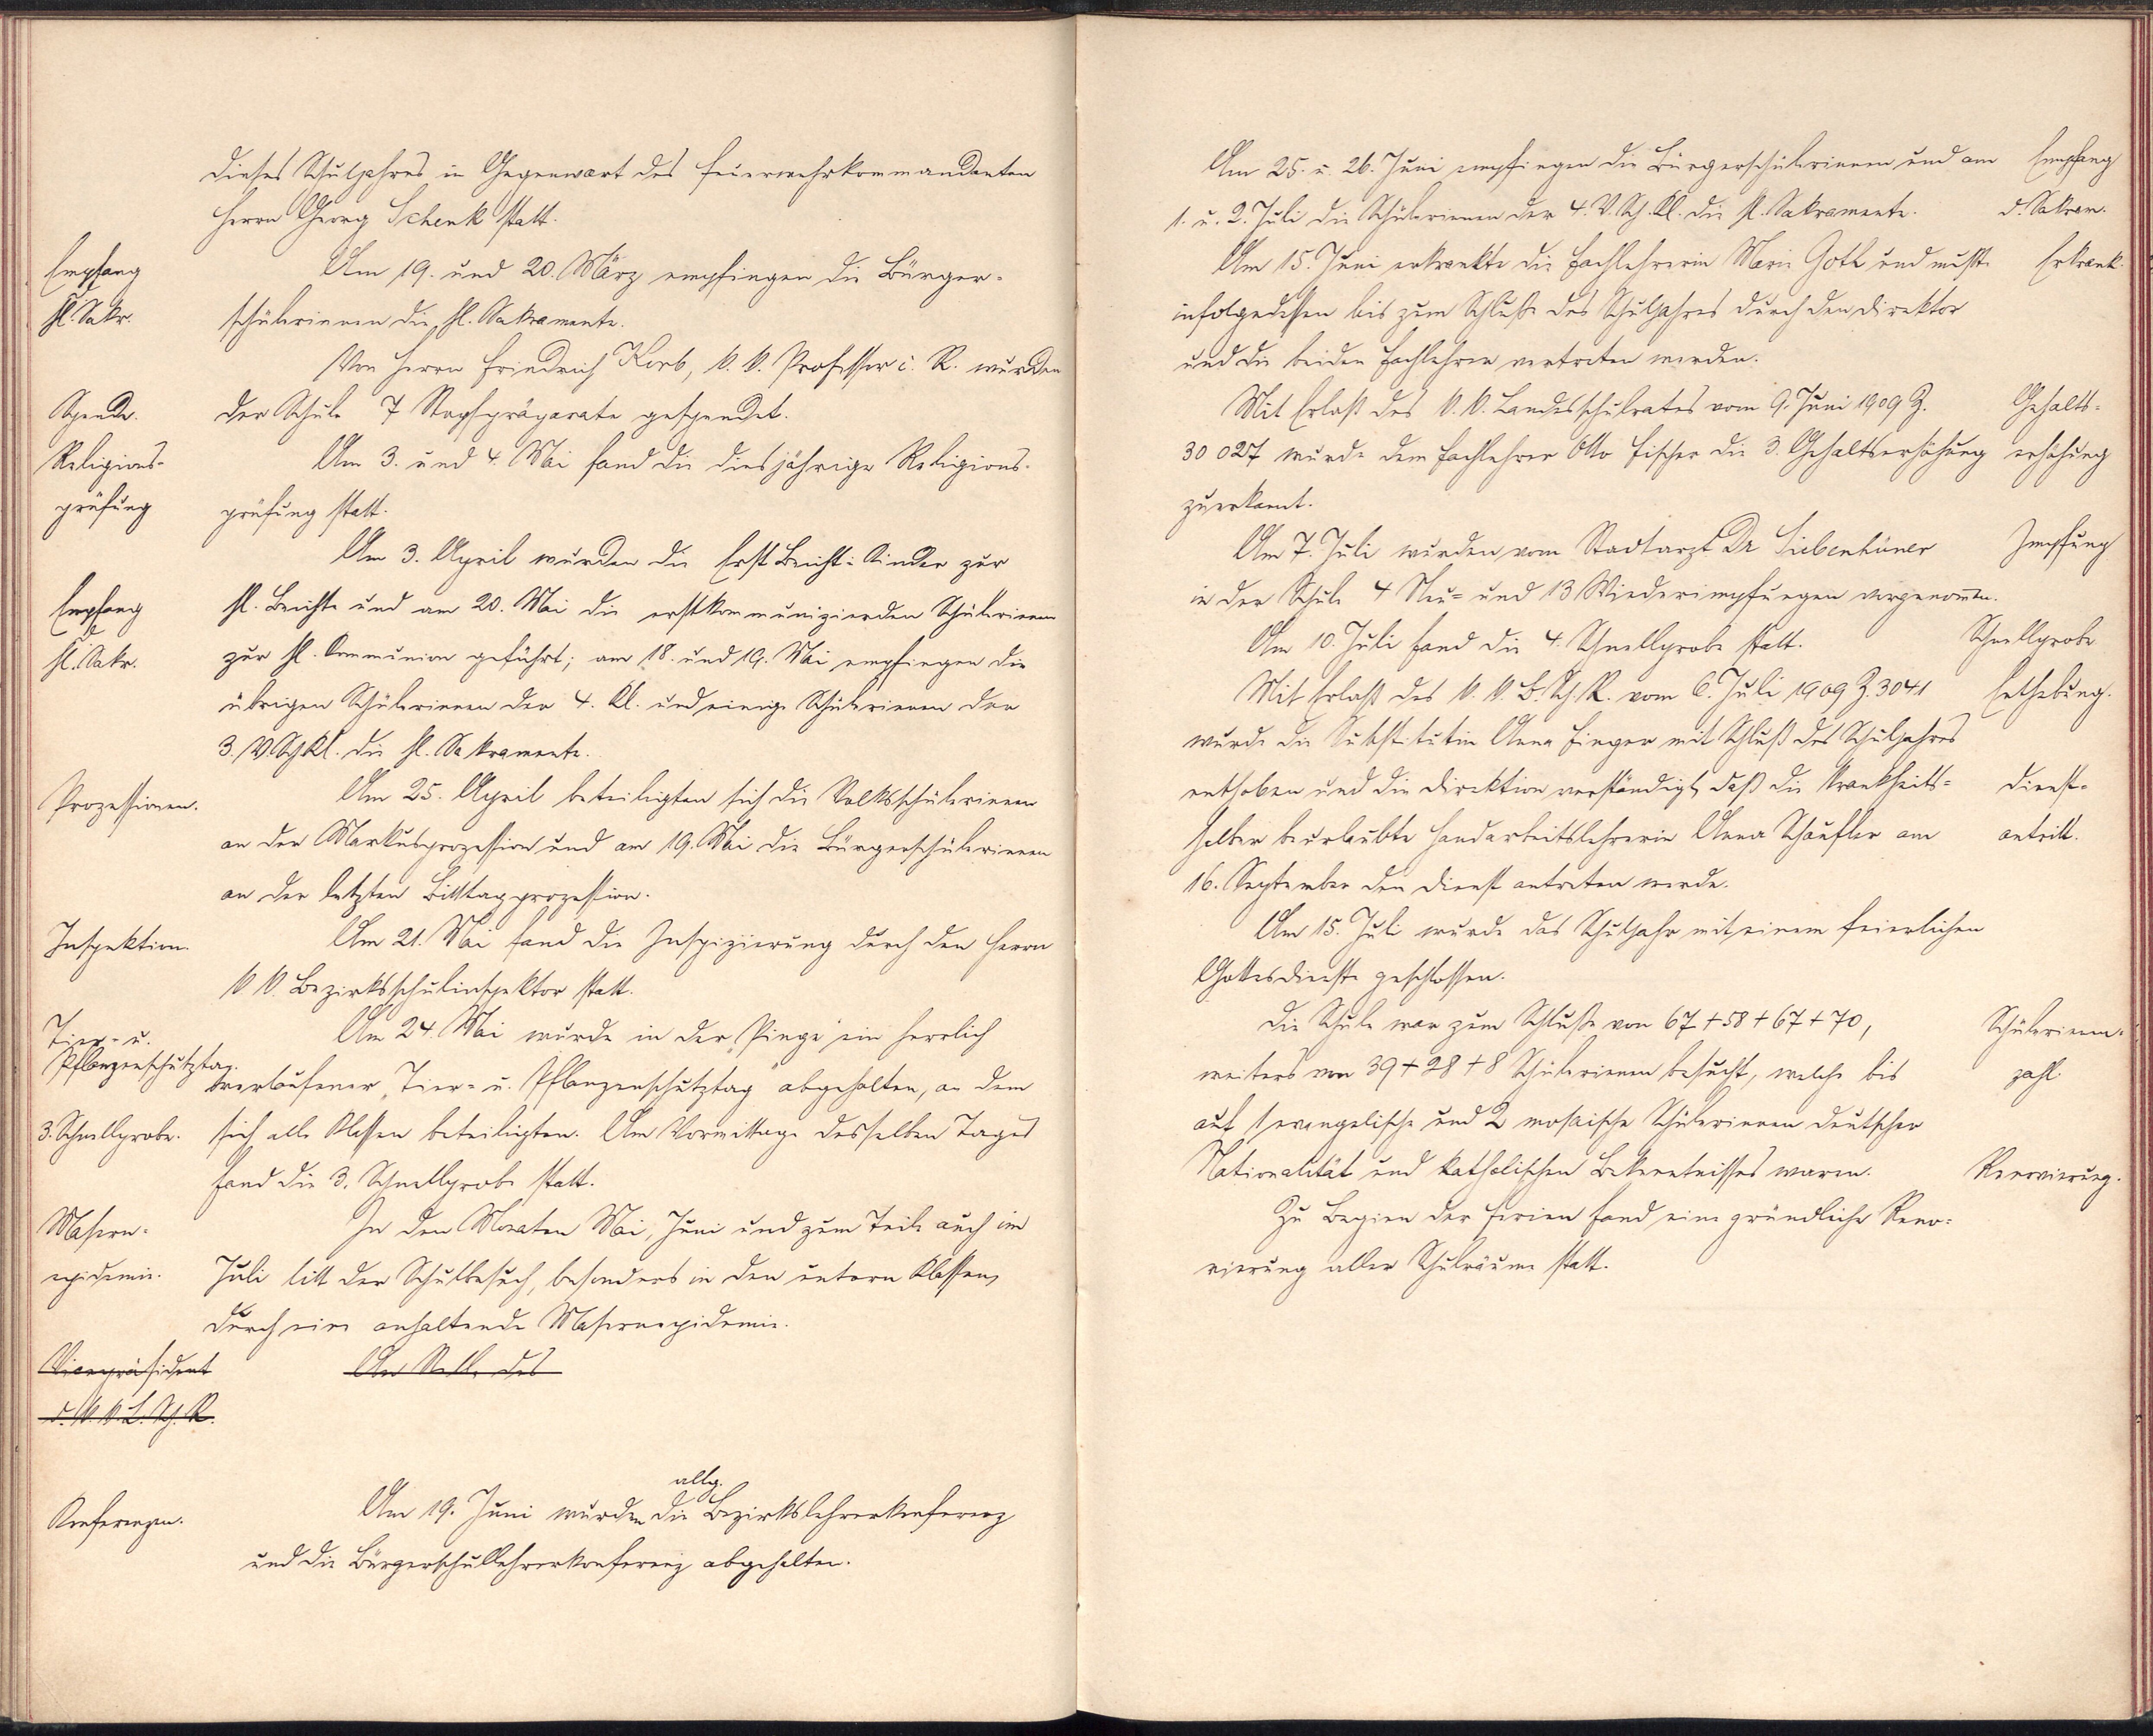 dieses Schuljahres in Gegenwart des Feuerwehrkommandanten
Herrn Georg Schenk statt.
Empfang
hl. Sakr.
Am 19. und 20. März empfingen die Bürger-
schülerinnen die hl. Sakramente.
Von Herrn Friedrich Korb, k. k. Professor i. R. wurden
Spende.
der Schule 7 Stopfpräparate gespendet.
Religions-
prüfung
Am 3. und 4. Mai fand die diesjährige Religions-
prüfung statt.
Am 3. April wurden die Erst Beicht-Kinder zur
Empfang
d.
hl. Sakr.
hl. Beichte und am 20. Mai die erstkommunizierden Schülerinnen
zur hl. Communion geführt; am 18. und 19. Mai empfingen die
übrigen Schülerinnen der 4. Kl. und einige Schülerinnen der
3. V. Sch Kl. die hl. Sakramente.
Prozessionen.
Am 25. April beteiligten sich die Volksschülerinnen
an der Markusprozession und am 19. Mai die Bürgerschülerinnen
an der letzten Bittagprozession.
Inspektion.
Am 21. Mai fand die Inspizierung durch den Herrn
k. k. Bezirksschulinspektor statt.
Tier- u.
Pflanzenschutztag.
Am 24. Mai wurde in der „Pinge" ein herrlich
verlaufener „Tier- u. Pflanzenschutztag" abgehalten, an dem
3. Schnellprobe.
sich alle Klassen beteiligten. Am Vormittage desselben Tages
fand die 3. Schnellprobe statt.
Masern-
epidemie.
In den Monaten Mai, Juni und zum Teile auch im
Juli litt der Schulbesuch, besonders in den untern Klassen,
durch eine anhaltende Masernepidemie.
Vicepräsident
d. k. k. L. Sch. R.
An Stelle des
Konferenzen.
allg.
Am 19. Juni wurden die Bezirkslehrerkonferenz
und die Bürgerschullehrerkonferenz abgehalten.
Am 25. u. 26. Juni empfingen die Bürgerschülerinnen und am
Empfang
1. u. 2. Juli die Schülerinnen der 4. V. Sch. Kl. die hl. Sakramente.
d. Sakram.
Am 15. Juni erkrankte die Fachlehrerin Marie Gotl und mußte
Erkrank.
infolgedessen bis zum Schluße des Schuljahres durch den Direktor
und die beiden Fachlehrer vertreten werden.
Mit Erlaß des k. k. Landesschulrates vom 9. Juni 1909 Z.
Gehalts-
30 027 wurde dem Fachlehrer Otto Fischer die 3. Gehaltserhöhung
erhöhung
zuerkannt.
Am 7. Juli wurden vom Stadtarzt Dr Siebenhüner
Impfung
in der Schule 4 Neu- und 13 Wiederimpfungen vorgenommen.
Am 10. Juli fand die 4. Schnellprobe statt.
Schnellprobe
Mit Erlaß des k. k. B. Sch. R. vom 6. Juli 1909 Z. 3041
Enthebung.
wurde die Substitutin Anna Finger mit Schluß des Schuljahres
enthoben und die Direktion verständigt, daß die krankheits-
Dienst-
halber beurlaubte Handarbeitslehrerin Anna Schaufler am
antritt.
16. September den Dienst antreten werde.
Am 15. Juli wurde das Schuljahr mit einem feierlichen
Gottesdienste geschlossen.
Die Schule war zum Schlusse von 67 + 58 + 67 + 70,
Schülerinnen-
weiters von 39 + 28 + 8 Schülerinnen besucht, welche bis
zahl.
auf 1 evangelische und 2 mosaische Schülerinnen deutscher
Nationalität und katholischen Bekenntnisses waren.
Renovierung.
Zu Beginn der Ferien fand eine gründliche Reno-
vierung aller Schulräume statt.